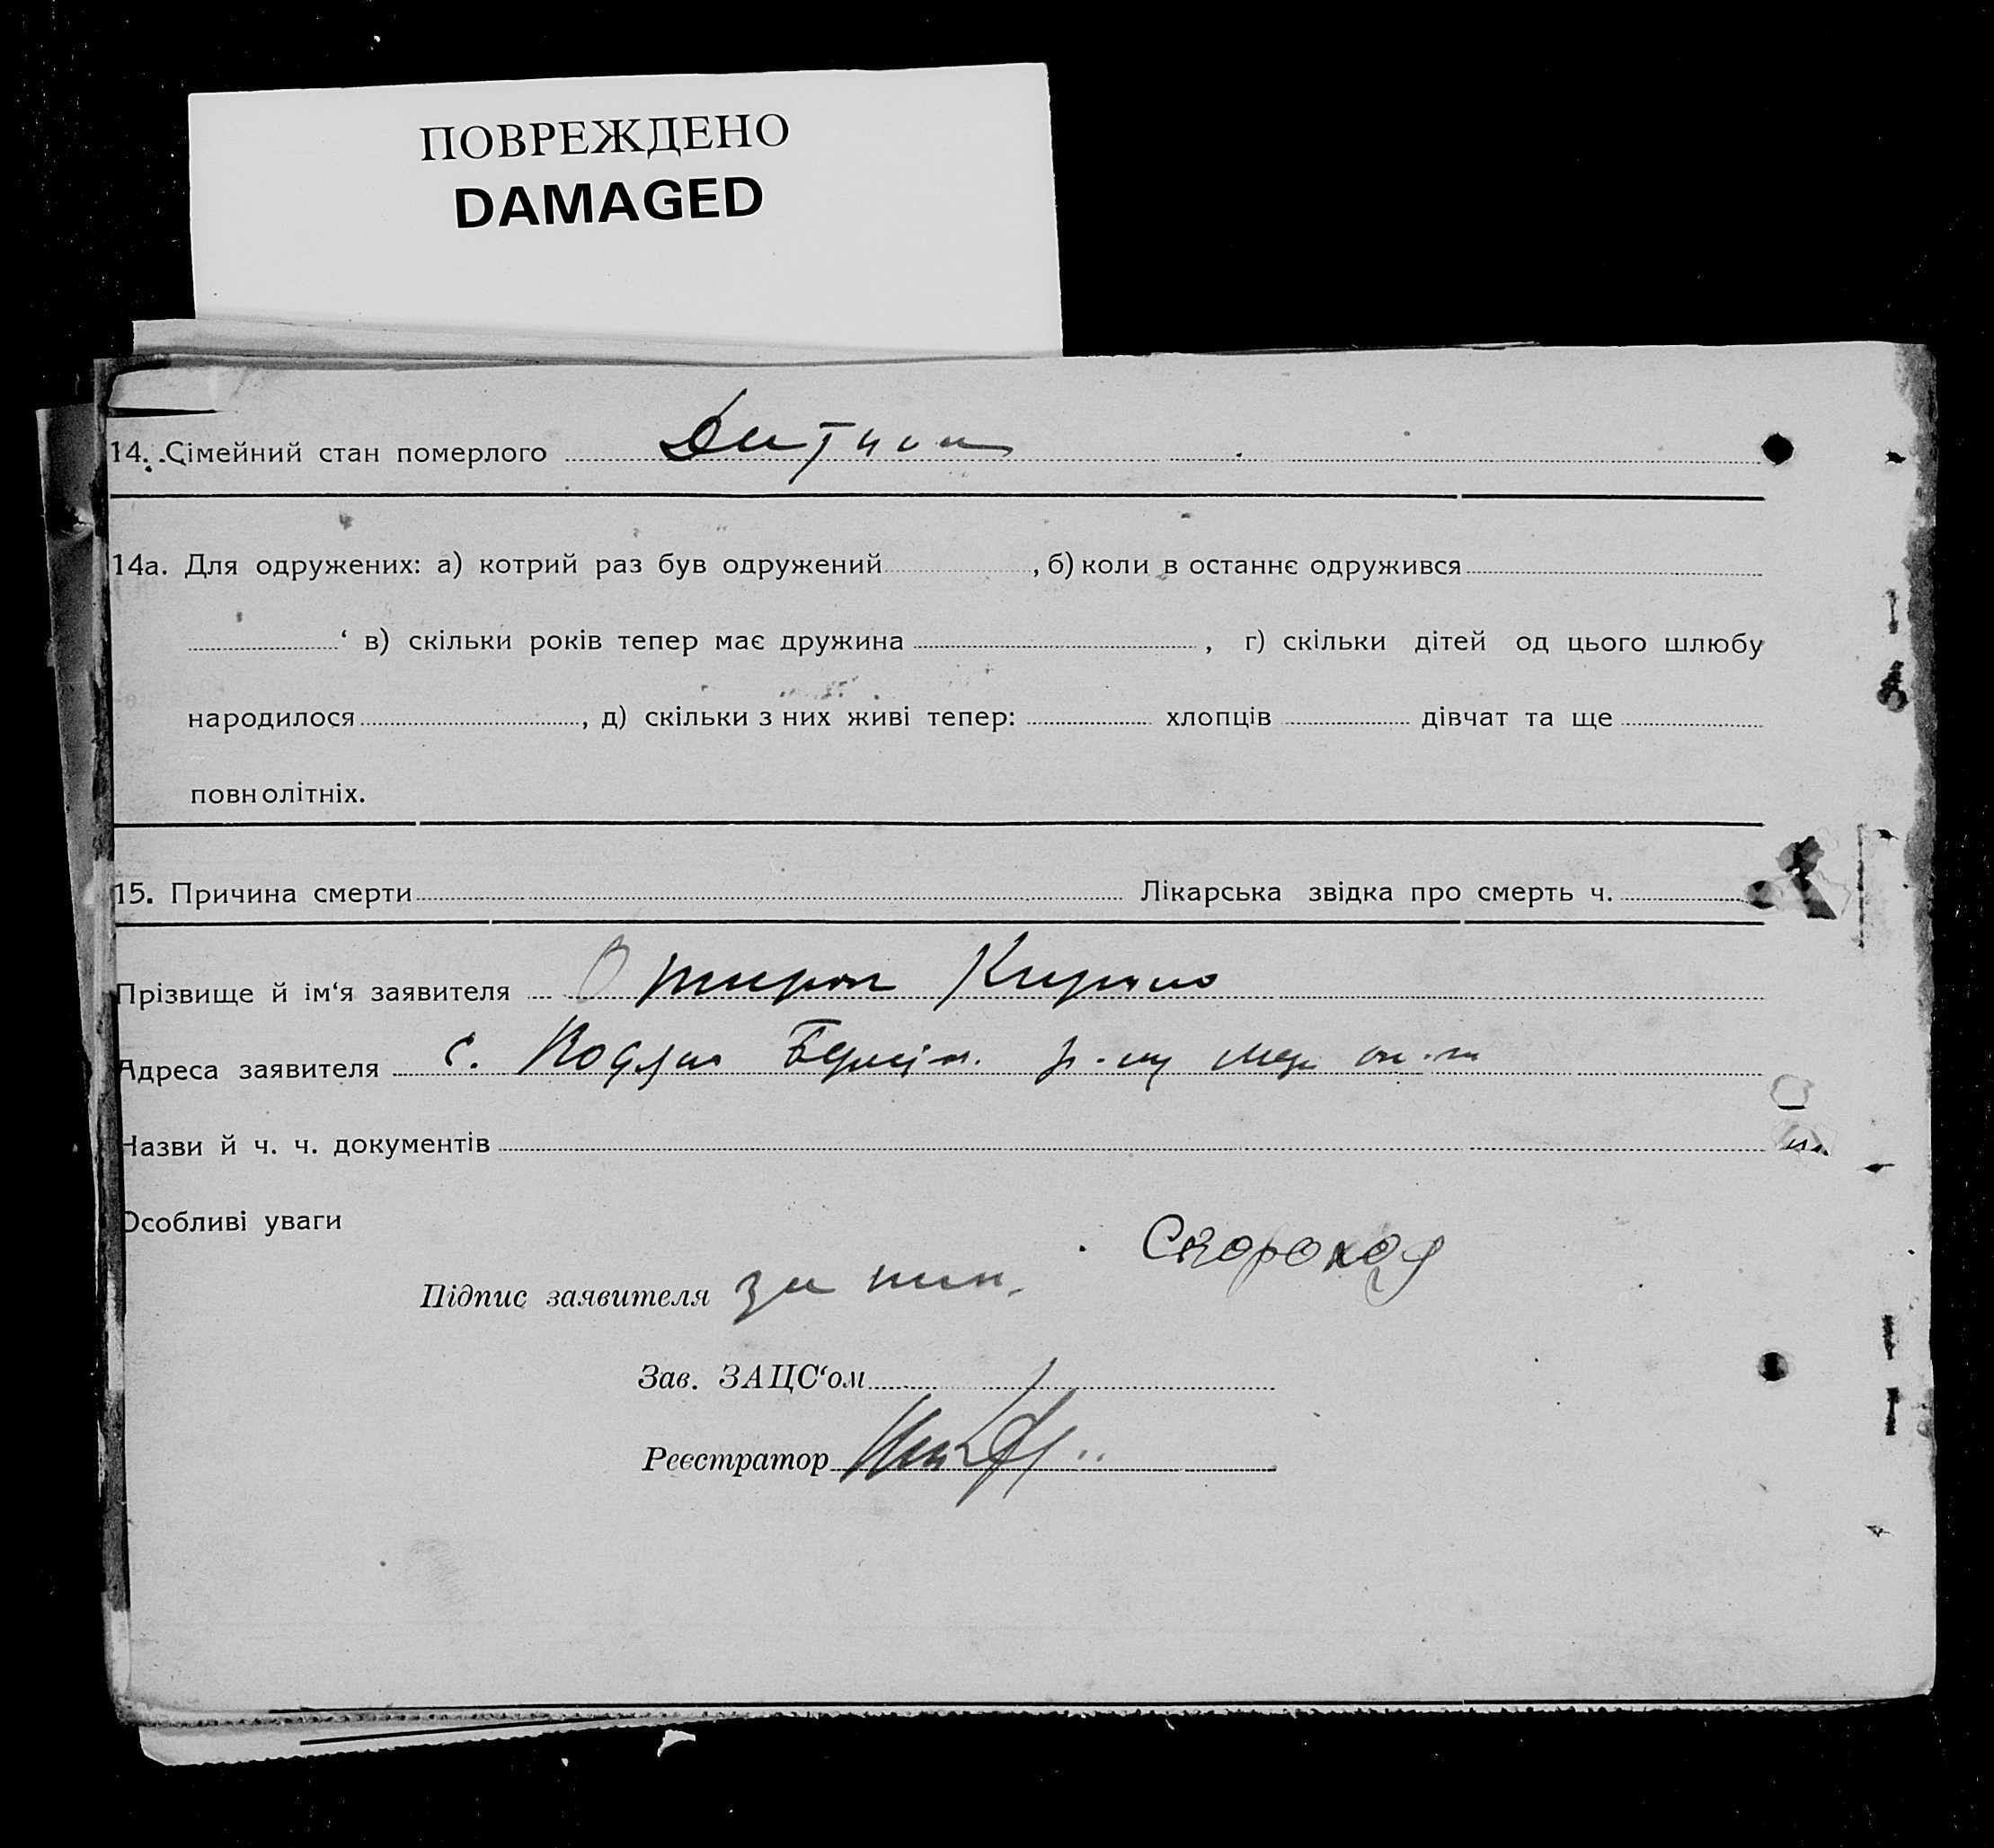 ПОВРЕЖДЕНО
DAMAGED
14. Сімейний стан померлого Дитина
14а. Для одружених: а) котрий раз був одружений , б) коли в останнє одружився
‘ в) скільки років тепер має дружина , г) скільки дітей од цього шлюбу
народилося , д) скільки з них живі тепер: хлопців дівчат та ще
повнолітніх.
15. Причина смерти Лікарська звідка про смерть ч.
Прізвище й ім‘я заявителя Кирило
Адреса заявителя с. р-ну
Назви й ч. ч. документів
Особливі уваги
Скороход
Підпис заявителя за
Зав. ЗАЦС‘ом
Реєстратор